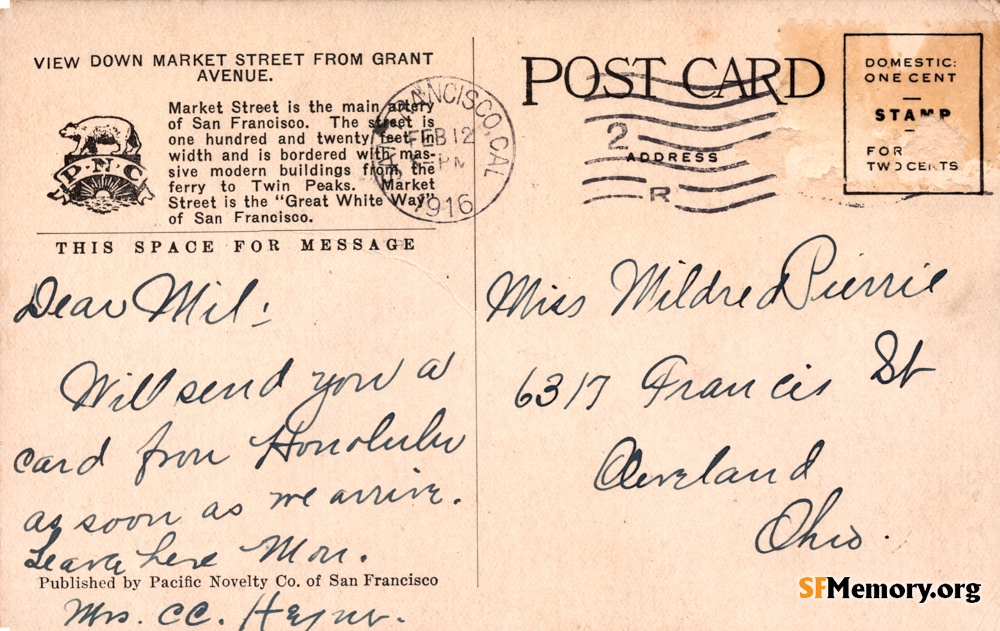 VIEW DOWN MARKET STREET FROM GRANT
AVENUE.
Market Street is the main artery
of San Francisco. The street is
one hundred and twenty feet in
width and is bordered with mas-
sive modern buildings from the
ferry to Twin Peaks. Market
Street is the "Great White Way"
of San Francisco.
P·N·C
THIS SPACE FOR MESSAGE
Dear Mil:
Will send you a
card from Honolulu
as soon as we arrive.
Leave here Mon.
Published by Pacific Novelty Co. of San Francisco
Mrs. CC.
POST CARD
SAN FRANCISCO, CAL
FEB 12
PM
1916
2
R
ADDRESS
DOMESTIC:
ONE CENT
STAMP
FOR
TWO CENTS
Miss Mildred Pierrie
6317 Francis St
Cleveland
Ohio.
SFMemory.org